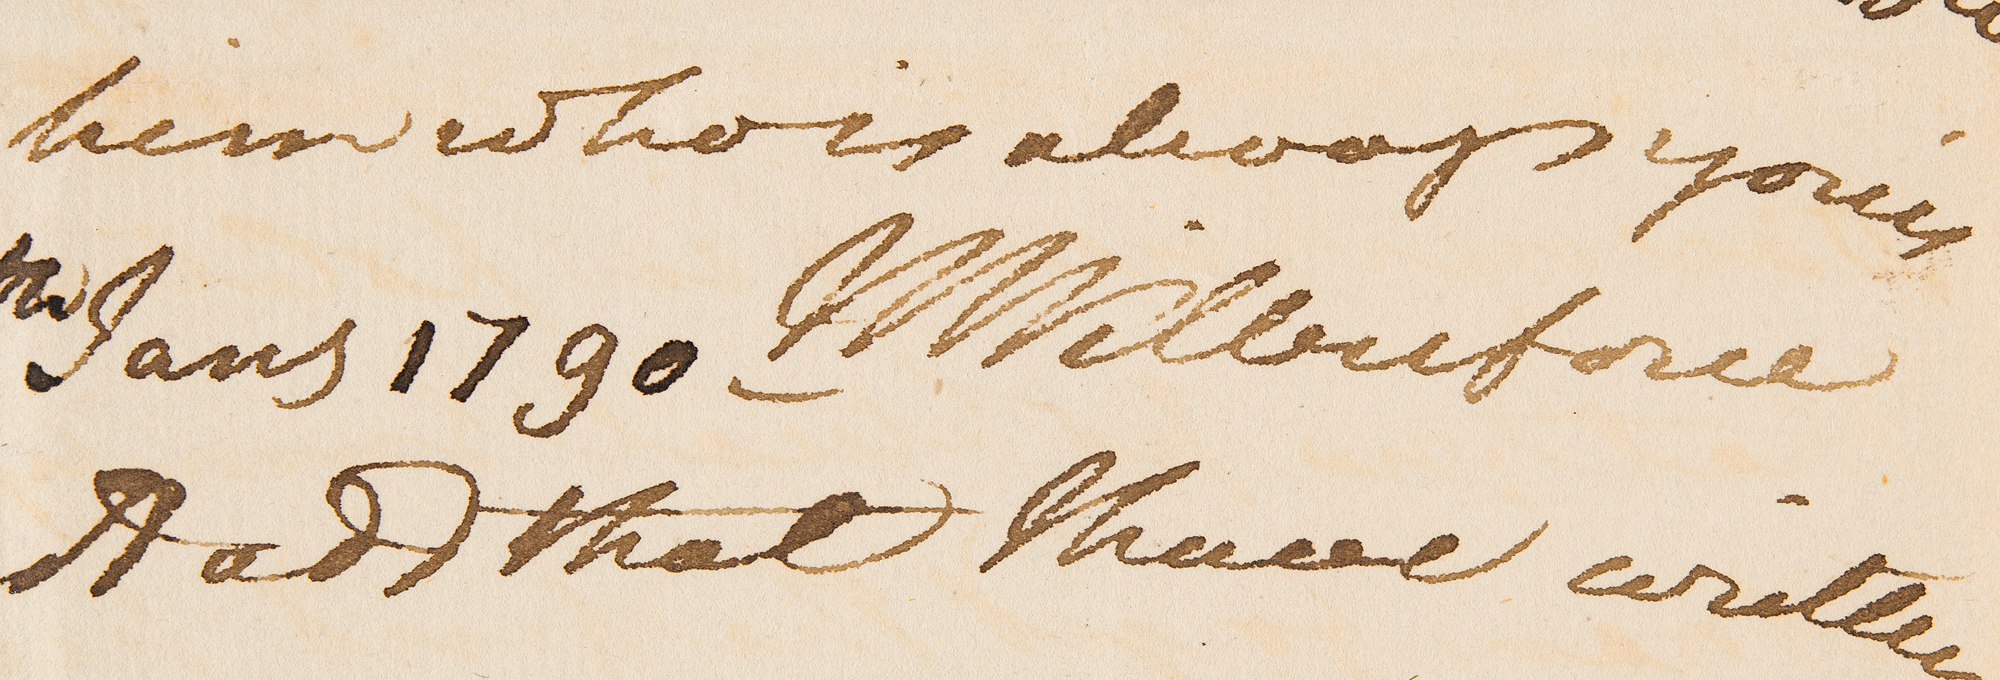 him who is always yours
Jany 1790 W Wilberforce
Read that I have written